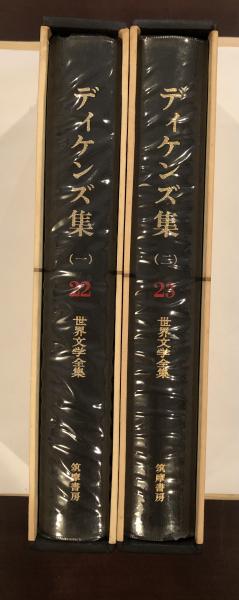 ディケンズ集
(一)
22
世界文学全集
筑摩書房
ディケンズ集
(二)
23
世界文学全集
筑摩書房